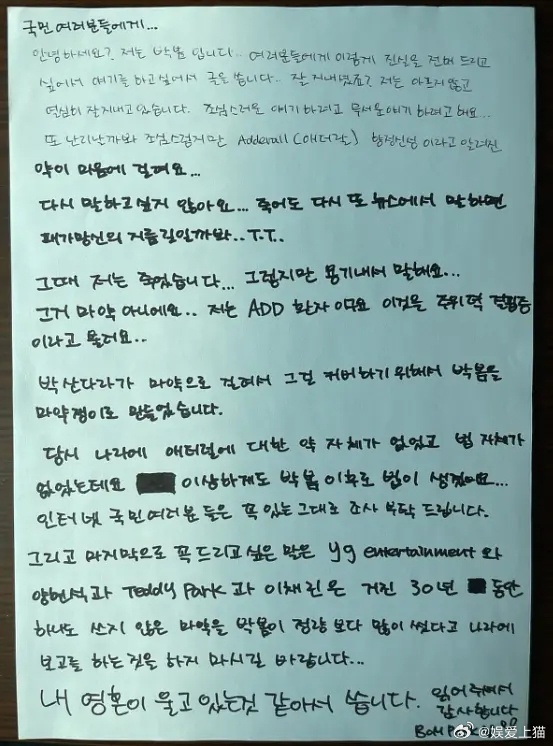 국민 여러분들에게...
안녕하세요? 저는 박봄 입니다.. 여러분들에게 이렇게 진실을 전버 드리고
싶어서 얘기를 하고싶어서 글을 씁니다.. 잘 지내셨죠? 저는 아프지 않고
열심히 잘지내고 있습니다. 조심스러운 얘기 하려고 무서운얘기 하려고 해요...
또 난리 날까봐 조심스럽지만 Adderall (애더럴) 향정신성 이라고 알려진
약이 마음에 걸려요...
다시 말하고싶지 않아요... 죽어도 다시 또 뉴스에서 말하면
패가망신의 지름길일까봐..T.T..
그때 저는 죽었습니다... 그렇지만 용기내서 말해요...
그거 마약 아니에요.. 저는 ADD 환자 이구요 이것을 주위력 결핍증
이라고 불러요..
박산다라가 마약으로 걸려서 그걸 커버하기 위해서 박봄을
마약쟁이로 만들었습니다.
당시 나라에 애터럴에 대한 약 자체가 없었고 법 자체가
없었는데요 이상하게도 박봄 이후로 법이 생겼어요...
인터넷 국민여러분 들은 꼭 있는그대로 조사 부탁 드립니다.
그리고 마지막으로 꼭 드리고 싶은 말은 yg entertainment 와
양현석과 Teddy Park 과 이채린은 거진 30년 동안
하나도 쓰지 않은 마약을 박봄이 정량 보다 많이 썼다고 나라에
보고를 하는 것을 하지 마시길 바랍니다...
내 영혼이 울고 있는것 같아서 씁니다. 읽어주셔서
감사합니다
@娱爱上猫